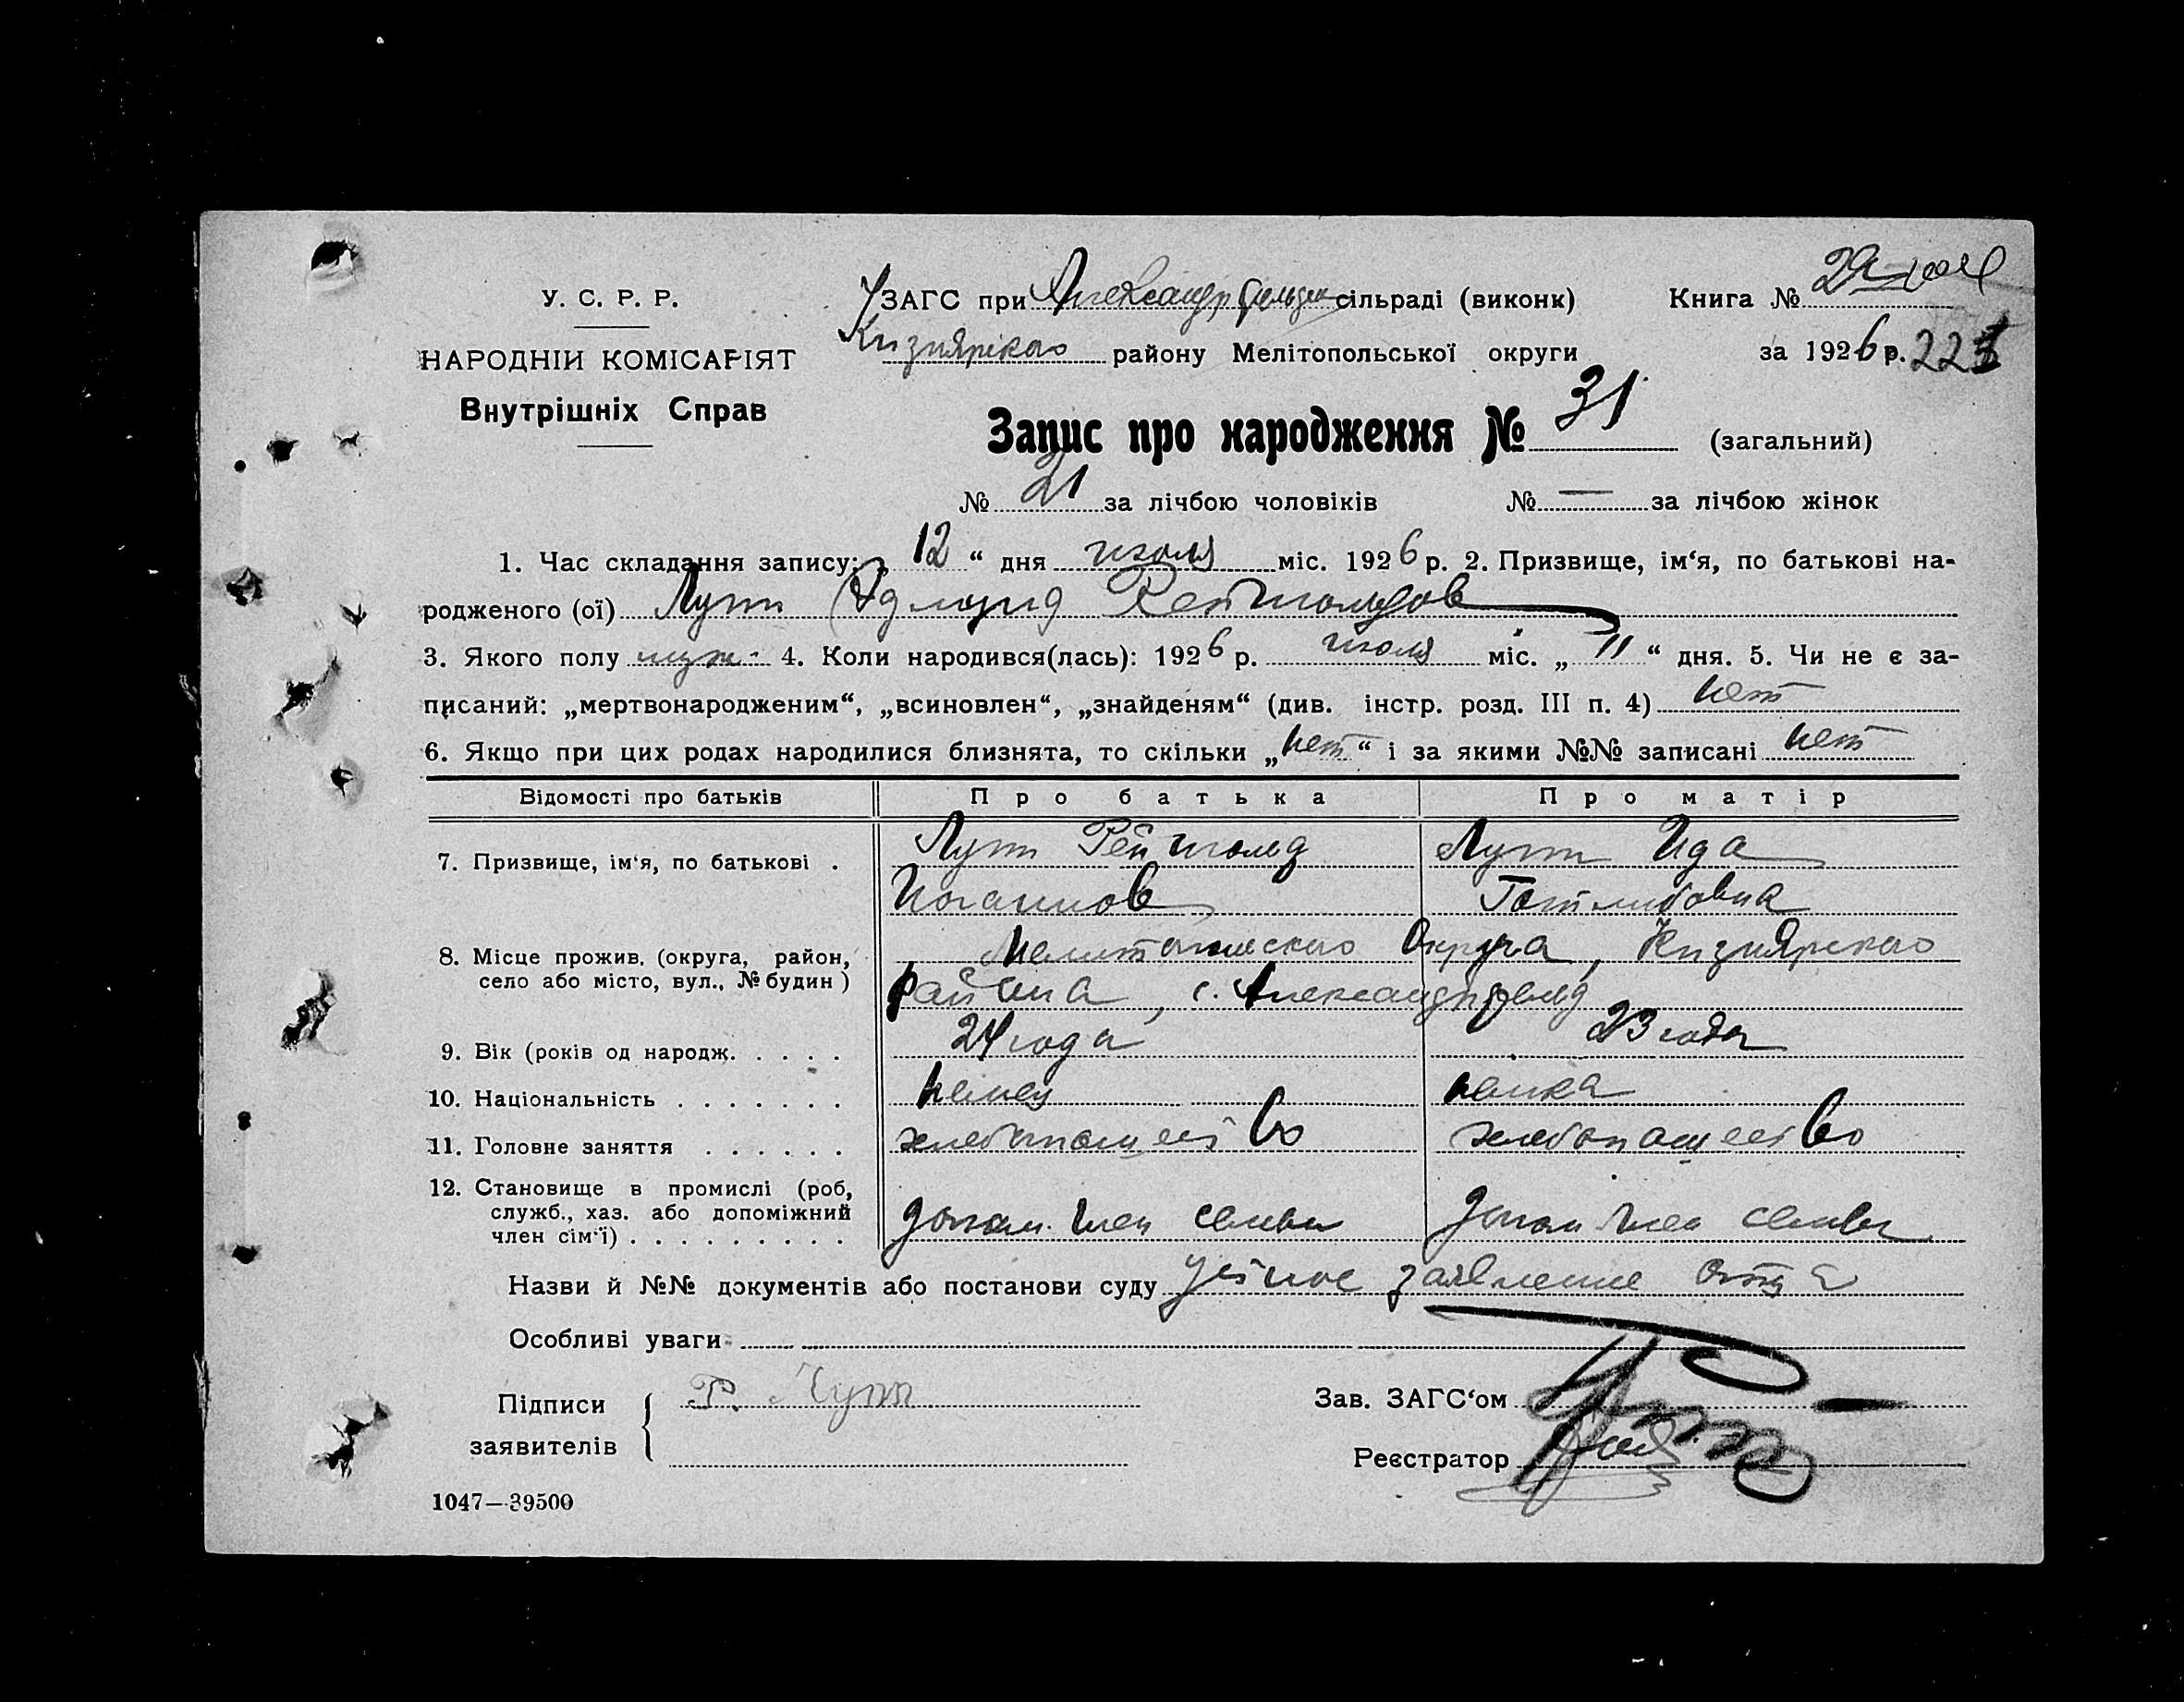 У. С. Р. Р.
НАРОДНІЙ КОМІСАРІЯТ
Внутрішніх Справ
ЗАГС при Александрфельдск сільраді (виконк)
Книга №
Кизиярского району Мелітопольської округи
за 1926 р. 22
Запис про народження № 31 (загальний)
№ 21 за лічбою чоловіків № — за лічбою жінок
1. Час складання запису: „ 12 “ дня июля міс. 1926 р. 2. Призвище, ім‘я, по батькові на-
родженого (ої) Лутт Эдмунд Рейнгольдов
3. Якого полу муж. 4. Коли народився(лась): 1926 р. июля міс. „ 11 “ дня. 5. Чи не є за-
писаний: „мертвонародженим“, „всиновлен“, „знайденям“ (див. інстр. розд. III п. 4) нет
6. Якщо при цих родах народилися близнята, то скільки „ нет “ і за якими №№ записані нет
Відомості про батьків Про батька Про матір
7. Призвище, ім‘я, по батькові . Лутт Рейнгольд Лутт Ида
Иоганнов Готлибовна
8. Місце прожив. (округа, район, Мелитопольского Округа, Кизиярского
село або місто, вул., № будин) района, с. Александрфельд
9. Вік (років од народж. . . . . 24 года 23 года
10. Національність . . . . . . . немец немка
11. Головне заняття . . . . . . хлебопашество хлебопашество
12. Становище в промислі (роб, служб., хаз. або допоміжний
член сім‘ї) . . . . . . . . . допом. член семьи допом член семьи
Назви й №№ документів або постанови суду устное заявление отца
Особливі уваги
Підписи заявителів Р. Лутт
Зав. ЗАГС‘ом
Реєстратор
1047—39500